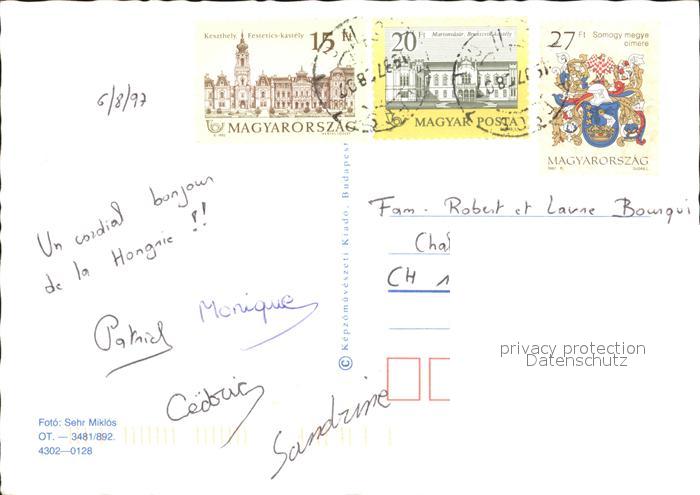 Keszthely, Festetics-kastély
15 Ft
MAGYARORSZÁG
20 Ft
Martonvásár, Brunszvik-kastély
MAGYAR POSTA
27 Ft Somogy megye
címere
MAGYARORSZÁG
6/8/97
Un cordial bonjour
de la Hongrie !!
Patrick
Monique
Cédric
Sandrine
© Képzőművészeti Kiadó, Budapest
Fam. Robert et Laure Bourqui
CH 1
privacy protection
Datenschutz
Fotó: Sehr Miklós
OT. — 3481/892.
4302—0128